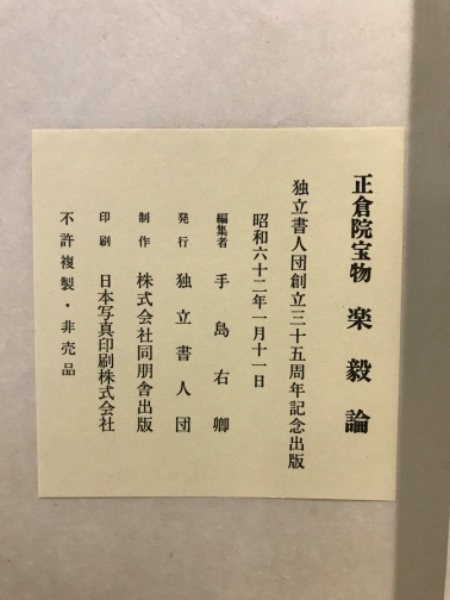 正倉院宝物 楽毅論
独立書人団創立三十五周年記念出版
昭和六十二年一月十一日
編集者 手島右卿
発行 独立書人団
制作 株式会社同朋舎出版
印刷 日本写真印刷株式会社
不許複製・非売品